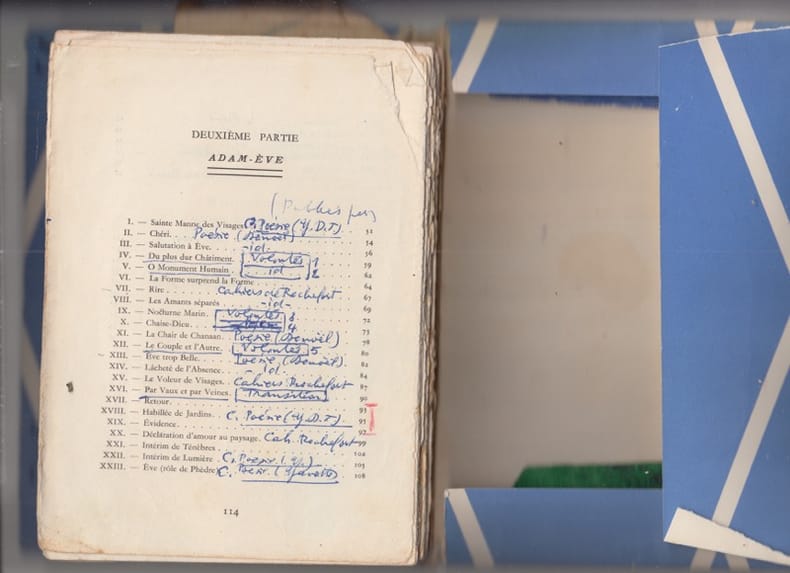 DEUXIÈME PARTIE
ADAM-ÈVE
(Publiés par)
I. — Sainte Manne des Visages C. Poésie (Y.D.T.) 51
II. — Chéri. . Poésie (Denoël) 54
III. — Salutation à Ève. . -id- 56
IV. — Du plus dur Châtiment. Volontés 1 59
V. — O Monument Humain . . id 2 62
VI. — La Forme surprend la Forme 64
VII. — Rire. Cahiers de Rochefort 67
VIII. — Les Amants séparés -id- 69
IX. — Nocturne Marin. Volontés 3 72
X. — Chaise-Dieu. 4 73
XI. — La Chair de Chanaan. Poésie (Denoël) 78
XII. — Le Couple et l'Autre. Volontés 5. 80
XIII. — Ève trop Belle. . Poésie (Denoël). 82
XIV. — Lâcheté de l'Absence. . -id- 84
XV. — Le Voleur de Visages. Cahiers Rochefort 87
XVI. — Par Vaux et par Veines. Transition 90
XVII. — Retour. 93
XVIII. — Habillée de Jardins. C. Poésie (Y.D.T.) 95
XIX. — Évidence. 97
XX. — Déclaration d'amour au paysage. Cah. Rochefort 99
XXI. — Intérim de Ténèbres 102
XXII. — Intérim de Lumière. C. Poésie 105
XXIII. — Ève (rôle de Phèdre) C. Poésie 108
114